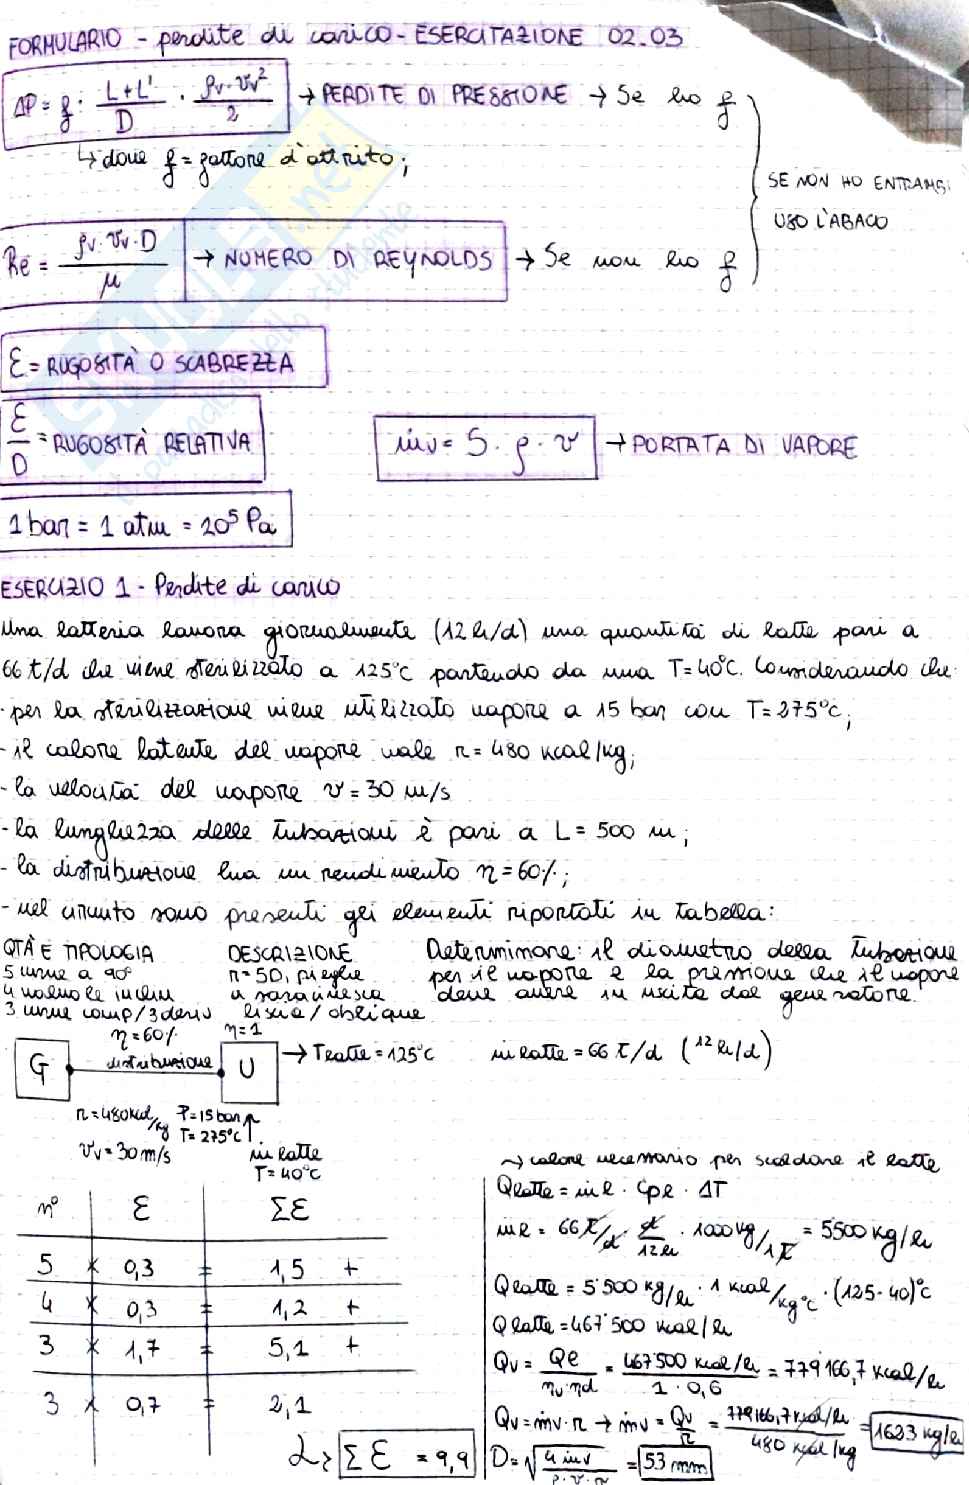 FORMULARIO - perdite di carico - ESERCITAZIONE 02.03
ΔP = f · (L+L')/D · (ρv · vv²)/2 → PERDITE DI PRESSIONE → Se ho f
↳ dove f = fattore d'attrito;
SE NON HO ENTRAMBI
USO L'ABACO
Re = (ρv · vv · D)/μ → NUMERO DI REYNOLDS → Se non ho f
ε = RUGOSITÀ O SCABREZZA
ε/D = RUGOSITÀ RELATIVA
ṁv = S · ρ · v → PORTATA DI VAPORE
1 bar = 1 atm = 10⁵ Pa
ESERCIZIO 1 - Perdite di carico
Una latteria lavora giornalmente (12 h/d) una quantità di latte pari a
66 t/d che viene sterilizzato a 125°C partendo da una T=40°C. Considerando che:
· per la sterilizzazione viene utilizzato vapore a 15 bar con T=275°C;
- il calore latente del vapore vale r = 480 kcal/kg;
- la velocità del vapore v = 30 m/s
- la lunghezza delle tubazioni è pari a L = 500 m;
- la distribuzione ha un rendimento η=60%;
- nel circuito sono presenti gli elementi riportati in tabella:
QTÀ E TIPOLOGIA DESCRIZIONE
5 curve a 90° r=5D, pieghe
4 valvole inclin a saracinesca
3 curve comp/3 deriv liscia/oblique
Determinare: il diametro della tubazione
per il vapore e la pressione che il vapore
deve avere in uscita dal generatore.
η=60% η=1
G distribuzione U → Tlatte = 125°C ṁlatte = 66 t/d (12 h/d)
r=480 kcal/kg P=15 bar
T=275°C
vv=30 m/s ṁ latte
T=40°C
n° ε Σε
5 x 0,3 = 1,5 +
4 x 0,3 = 1,2 +
3 x 1,7 = 5,1 +
3 x 0,7 = 2,1
↳ Σε = 9,9
→ calore necessario per scaldare il latte
Qlatte = ṁl · Cpl · ΔT
ṁl = 66 t/d · d/12h · 1000 kg/1t = 5500 kg/h
Qlatte = 5'500 kg/h · 1 kcal/kg°C · (125-40)°C
Qlatte = 467'500 kcal/h
Qv = Ql/(ηu·ηd) = 467'500 kcal/h / (1 · 0,6) = 779'166,7 kcal/h
Qv = ṁv · r → ṁv = Qv/r = 779166,7 kcal/h / 480 kcal/kg = 1623 kg/h
D = √(4ṁv/(ρ·v·π)) = 53 mm